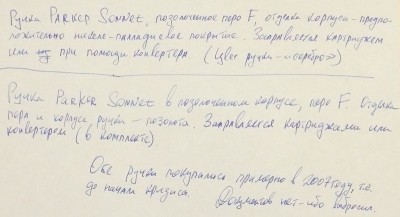 Ручка PARKER SONNET, позолоченное перо F, отделка корпуса - предпо-
ложительно никеле-палладиевое покрытие. Заправляется картриджем
или при помощи конвертера (Цвет ручки - «серебро»)
Ручка PARKER SONNET в позолоченном корпусе, перо F. Отделка
пера и корпуса ручки - позолота. Заправляется картриджами или
конвертером (в комплекте).
Обе ручки покупались примерно в 2007 году, т.е.
до начала кризиса. Документов нет - ибо выбросил.